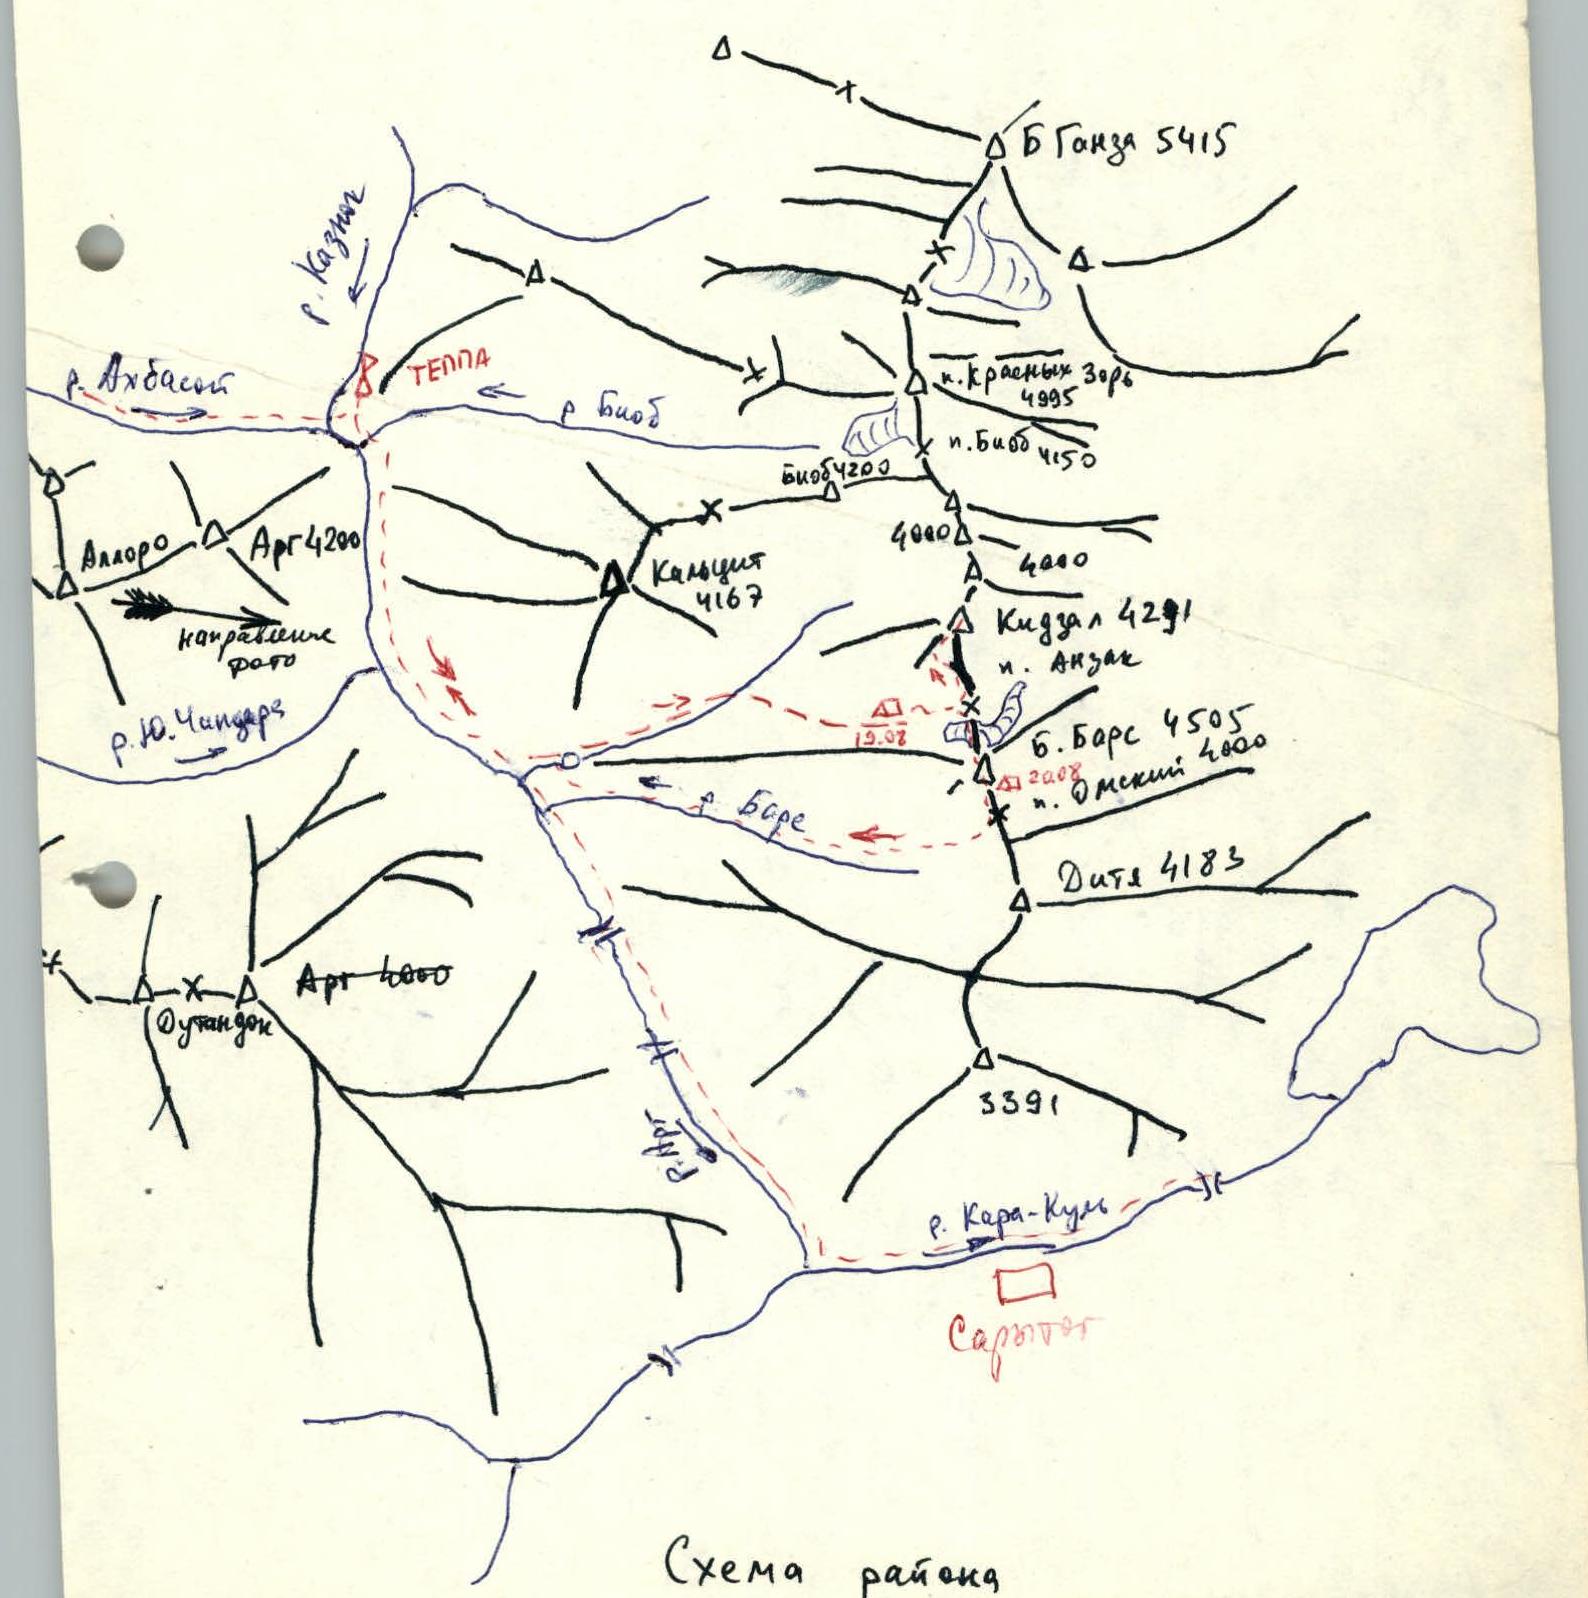 Б Ганза 5415
р. Казнок
ТЕППА
р. Ахбасой
р Биоб
п. Красных Зорь
4995
п. Биоб 4150
Биоб 4200
Аллоро
Арг 4200
4000
4000
Кальцит
4167
Кидзал 4291
направление
фото
п. Анзак
р. Ю. Чапдара
19.08
Б. Барс 4505
20.08
п. Омский 4000
р Барс
Дитя 4183
Арг 4000
Дутандон
3391
р. Арг
р. Кара-Куль
Сарытог
Схема района